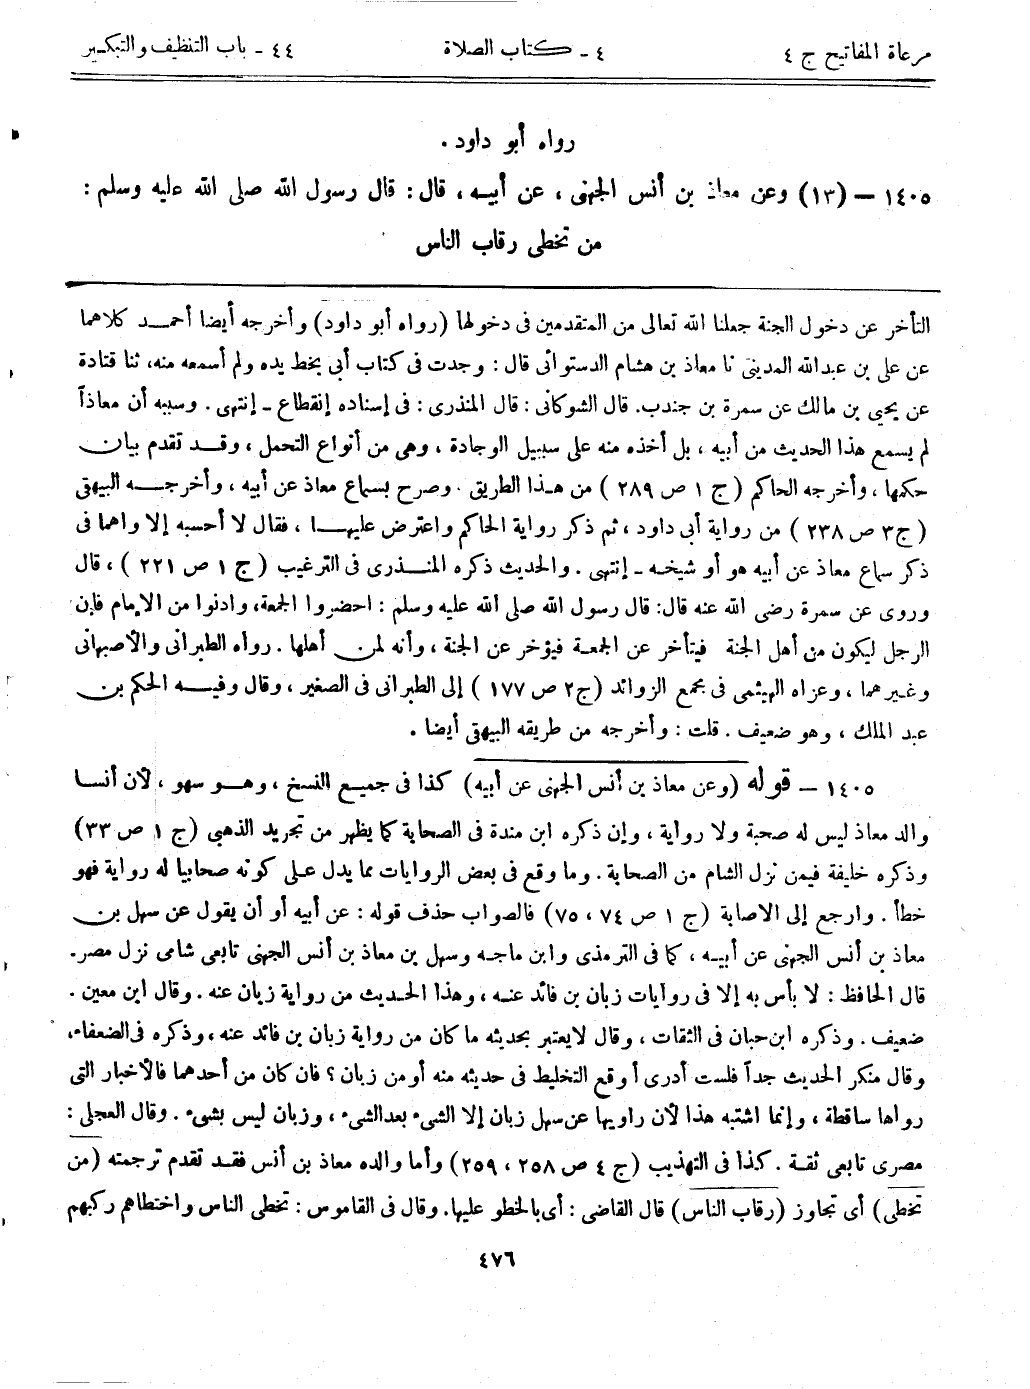 مرعاة المفاتيح ج ٤
٤ - كتاب الصلاة
٤٤ - باب التنظيف والتبكير
رواه أبو داود .
١٤٠٥ – (١٣) وعن معاذ بن أنس الجهنى ، عن أبيه ، قال : قال رسول الله صلى الله عليه وسلم :
من تخطى رقاب الناس
التأخر عن دخول الجنة جعلنا الله تعالى من المتقدمين فى دخولها (رواه أبو داود) وأخرجه أيضا أحمد كلاهما
عن على بن عبدالله المدينى نا معاذ بن هشام الدستوائى قال : وجدت فى كتاب أبى بخط يده ولم أسمعه منه، ثنا قتادة
عن يحيى بن مالك عن سمرة بن جندب. قال الشوكانى : قال المنذرى : فى إسناده إنقطاع ــ إنتهى . وسببه أن معاذاً
لم يسمع هذا الحديث من أبيه ، بل أخذه منه على سبيل الوجادة ، وهى من أنواع التحمل ، وقد تقدم بيان
حكمها ، وأخرجه الحاكم (ج ١ ص ٢٨٩ ) من هذا الطريق . وصرح بسماع معاذ عن أبيه ، وأخرجه البيهقى
(ج٣ ص ٢٣٨ ) من رواية أبى داود ، ثم ذكر رواية الحاكم واعترض عليها ، فقال لا أحسبه إلا واهما فى
ذكر سماع معاذ عن أبيه هو أو شيخه ــ إنتهى . والحديث ذكره المنذرى فى الترغيب (ج ١ ص ٢٢١ ) ، قال
وروى عن سمرة رضى الله عنه قال: قال رسول الله صلى الله عليه وسلم : احضروا الجمعة، وادنوا من الإمام فإن
الرجل ليكون من أهل الجنة فيتأخر عن الجمعة فيؤخر عن الجنة ، وأنه لمن أهلها . رواه الطبرانى والأصبهانى
وغيرهما ، وعزاه الهيثمى فى مجمع الزوائد (ج٢ ص ١٧٧ ) إلى الطبرانى فى الصغير ، وقال وفيه الحكم بن
عبد الملك ، وهو ضعيف . قلت : وأخرجه من طريقه البيهقى أيضا .
١٤٠٥ – قوله (وعن معاذ بن أنس الجهنى عن أبيه) كذا فى جميع النسخ ، وهو سهو ، لأن أنسا
والد معاذ ليس له صحبة ولا رواية ، وإن ذكره ابن مندة فى الصحابة كما يظهر من تجريد الذهبى (ج ١ ص ٣٣)
وذكره خليفة فيمن نزل الشام من الصحابة . وما وقع فى بعض الروايات مما يدل على كونه صحابيا له رواية فهو
خطأ . وارجع إلى الاصابة (ج ١ ص ٧٤ ، ٧٥) فالصواب حذف قوله : عن أبيه أو أن يقول عن سهل بن
معاذ بن أنس الجهنى عن أبيه ، كما فى الترمذى وابن ماجه وسهل بن معاذ بن أنس الجهنى تابعى شامى نزل مصر.
قال الحافظ : لا بأس به إلا فى روايات زبان بن فائد عنه ، وهذا الحديث من رواية زبان عنه . وقال ابن معين .
ضعيف . وذكره ابن حبان فى الثقات ، وقال لايعتبر بحديثه ما كان من رواية زبان بن فائد عنه ، وذكره فى الضعفاء،
وقال منكر الحديث جداً فلست أدرى أوقع التخليط فى حديثه منه أو من زبان ؟ فان كان من أحدهما فالأخبار التى
رواها ساقطة ، وإنما اشتبه هذا لأن راويها عن سهل زبان إلا الشىء بعدالشىء ، وزبان ليس بشىء . وقال العجلى :
مصرى تابعى ثقة . كذا فى التهذيب (ج ٤ ص ٢٥٨ ، ٢٥٩) وأما والده معاذ بن أنس فقد تقدم ترجمته (من
تخطى) أى تجاوز (رقاب الناس) قال القاضى : أى بالخطو عليها. وقال فى القاموس : تخطى الناس واختطاهم ركبهم
٤٧٦